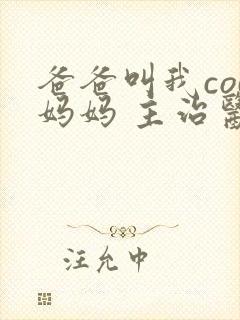 爸爸叫我co
妈妈 主治
汪允中